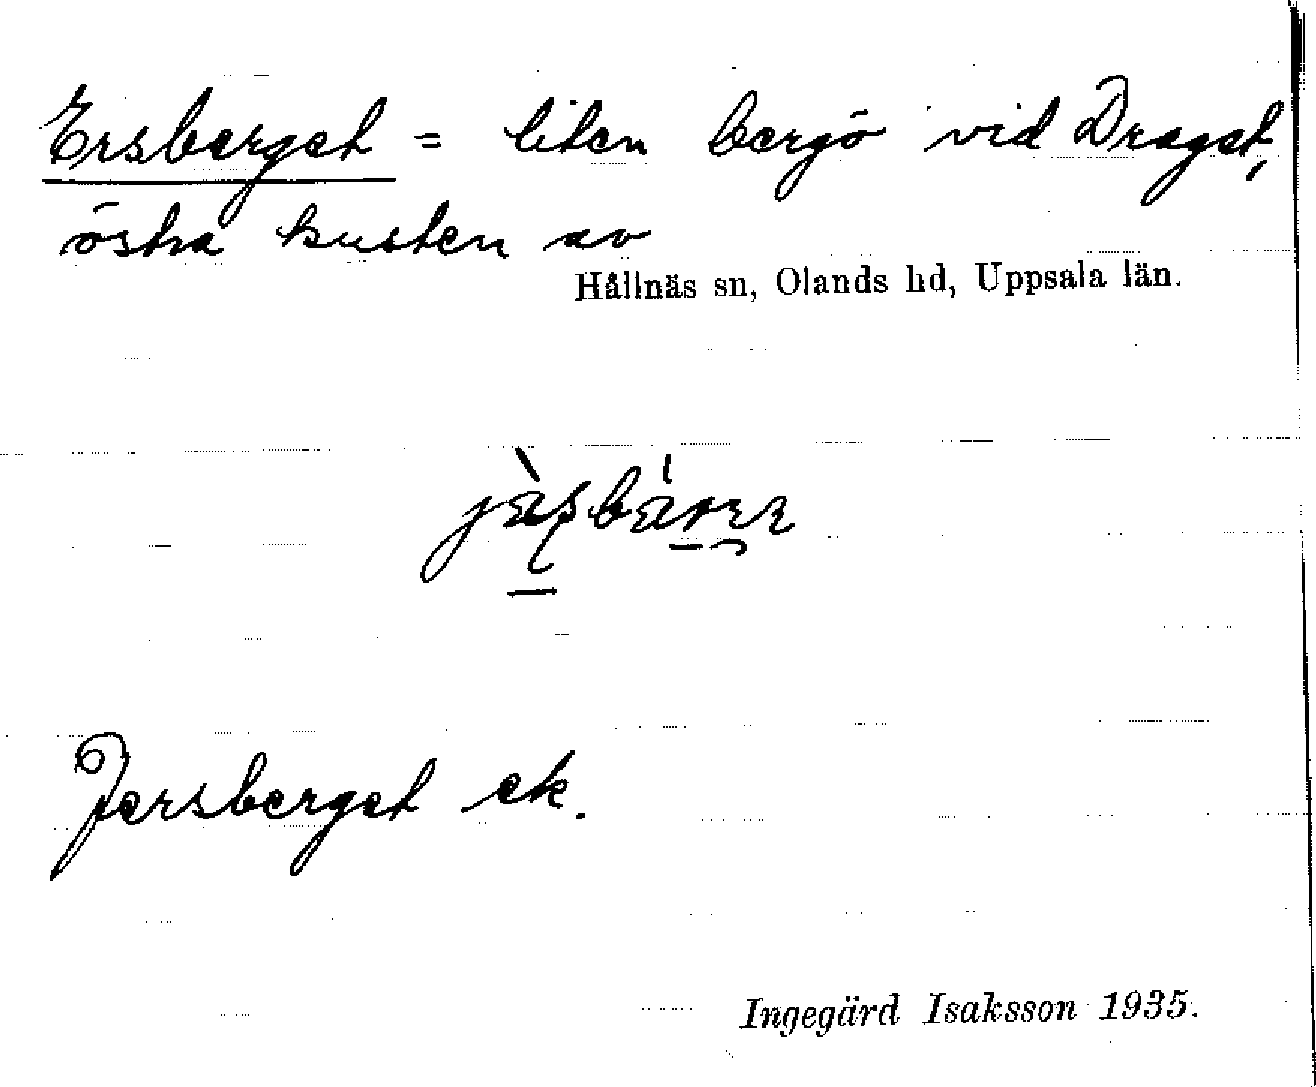 Ersberget = liten bergö vid Draget,
östra kusten av
Hållnäs sn, Olands hd, Uppsala län.
Jersberget ek.
Ingegärd Isaksson 1935.